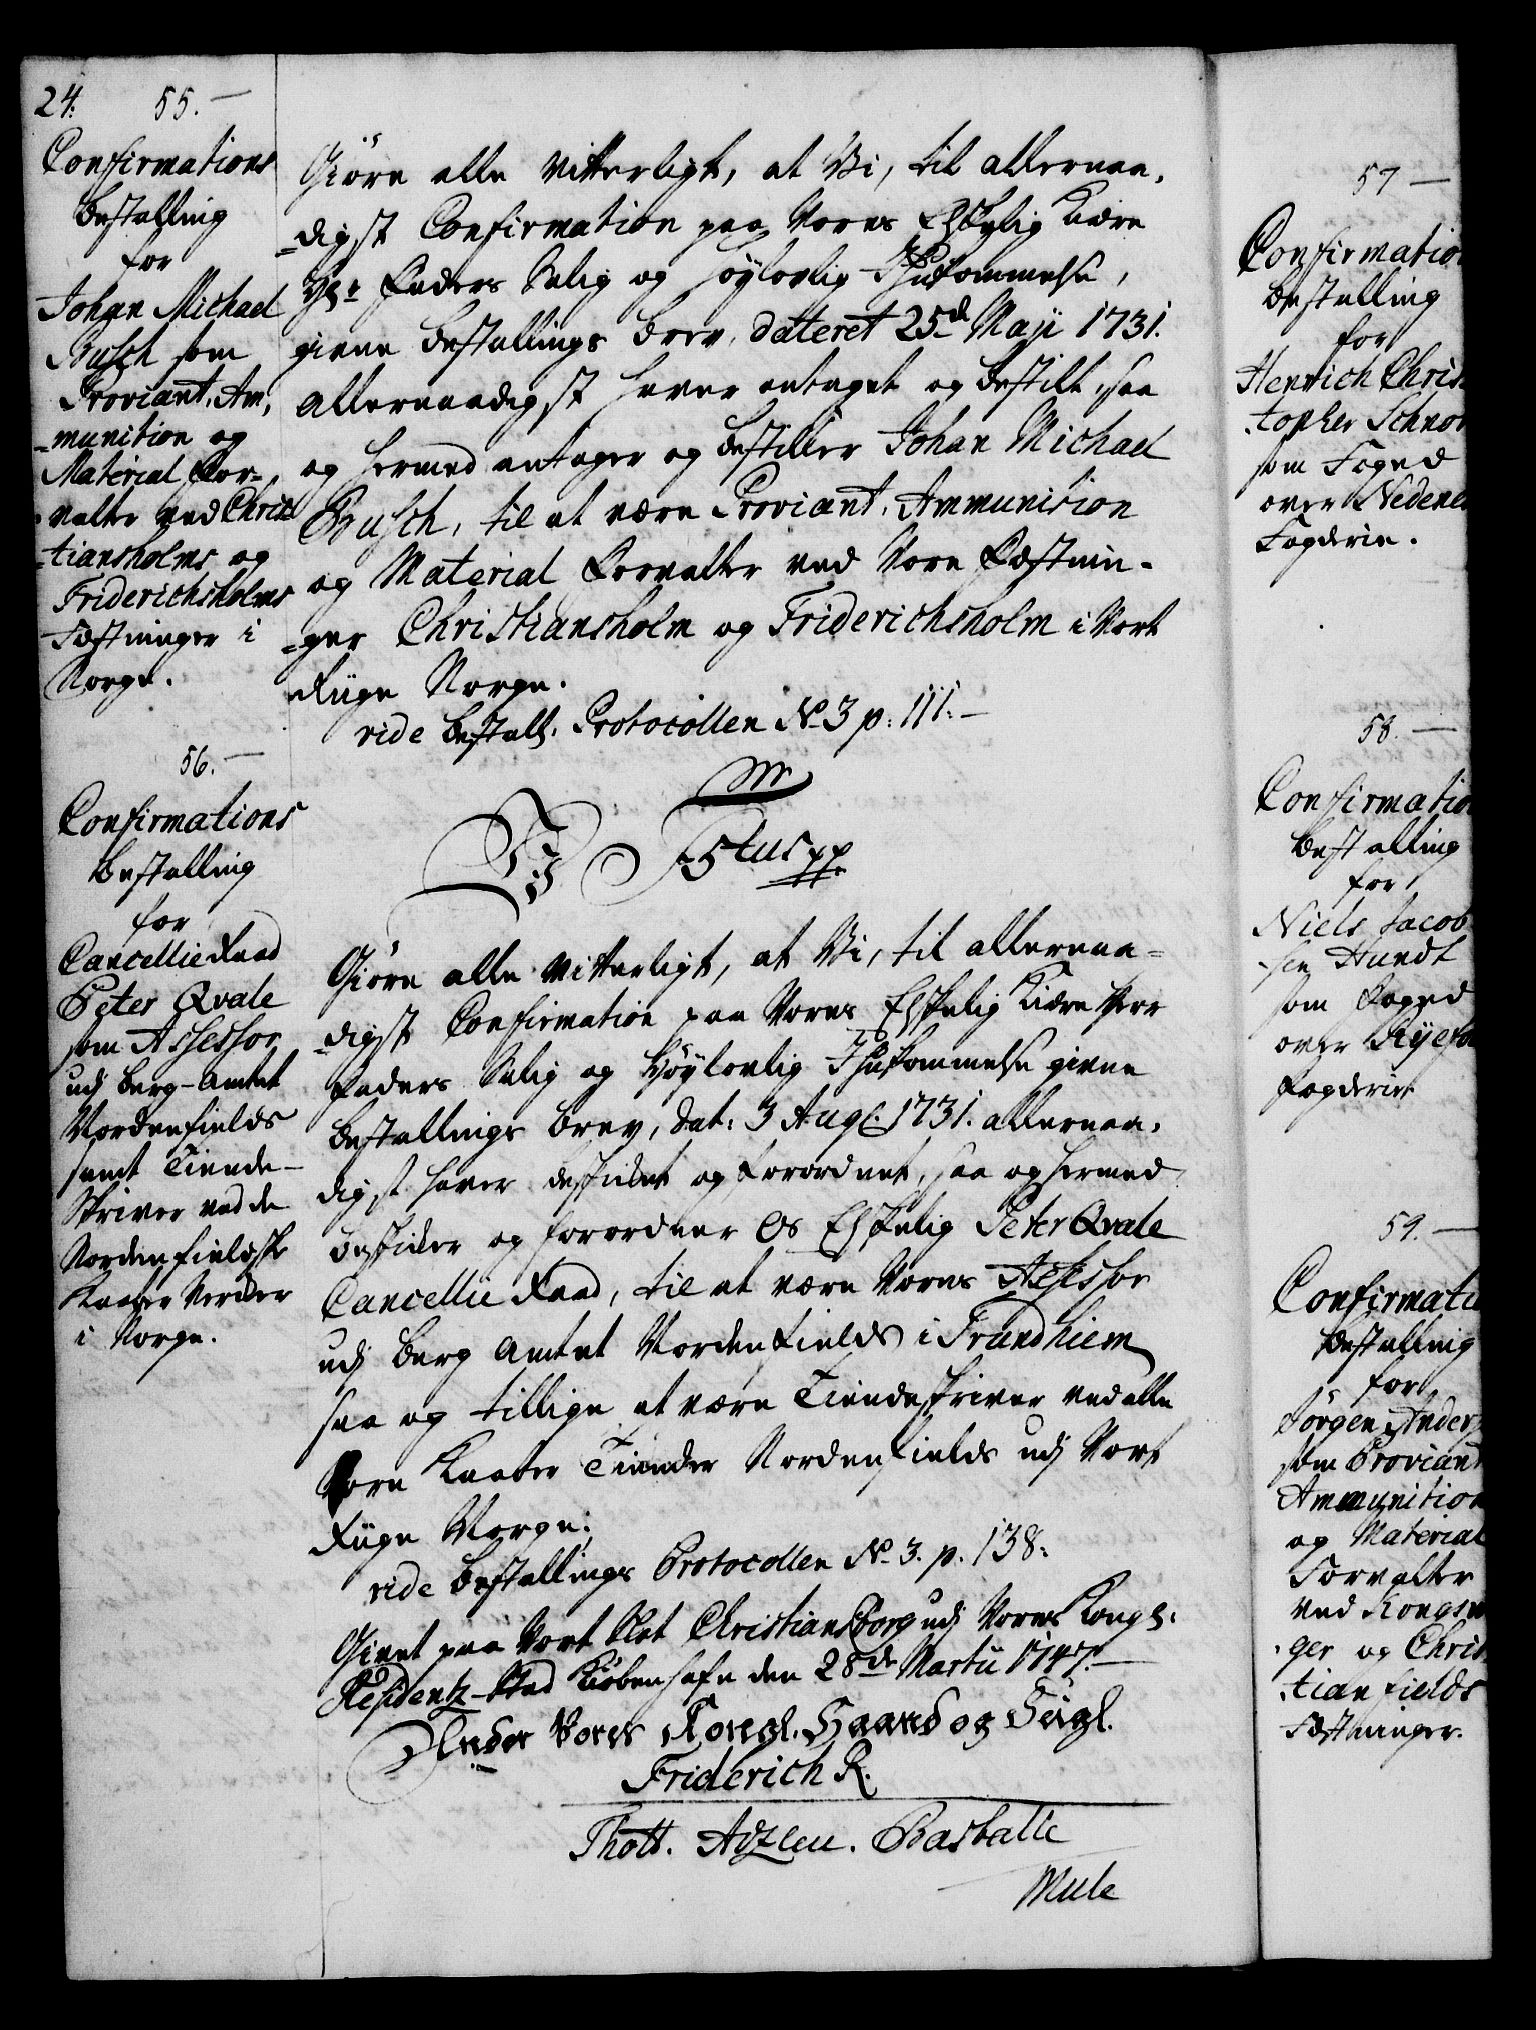 24. 55. —
Confirmations
Bestalling
for
Johan Michael
Busch som
Proviant, Am,
-munition og
Material For-
valter ved Chris
-tiansholms og
Friderichsholms
Fæstninger i
Norge.
Giøre alle vitterligt, at Vi, til allernaa,
-digst Confirmation paa Vores Elskelig Kiære
Hr. Faders Salig og Høylovlig Ihukommelse,
givne Bestallings Brev, dateret 25de Maji 1731.
allernaadigst haver antaget og bestilt, saa
og hermed antager og bestiller Johan Michael
Busch, til at være Proviant, Ammunision
og Material Forvalter ved Vore Fæstnin-
-ger Christiansholm og Friderichsholm i Vort
Riige Norge.
vide Bestall. Protocollen No 3 p: 111. —
56. —
Confirmations
Bestalling
for
Cancellie Raad
Peter Qvale
som Assessor
udj Berg-Amtet
Nordenfields
samt Tiende-
Skriver ved de
Nordenfieldske
Kaaber Værker
i Norge.
Giøre alle vitterligt, at Vi, til allernaa=
-digst Confirmation paa Vores Elskelig Kiære Herr
Faders Salig og Høylovlig Ihukommelse givne
Bestallings Brev, dat: 3 Aug: 1731. allernaa,
digst haver beskikket og forordnet, saa og hermed
beskikker og forordner Os Elskelig Peter Qvale
Cancellie Raad, til at være Vores Assessor
udj Berg Amtet Nordenfields i Trundhiem
saa og tillige at være Tiendeskriver ved alle
Vore Kaaber Tiender Nordenfields udj Vort
Riige Norge;
vide Bestallings Protocollen No 3. p. 138.
Givet paa Vort Slot Christiansborg udj Vores Kongl:
Residentz-Stad Kiøbenhafn den 28de Martii 1747. —
Under Vores Kongl. Haand og Seigl.
Friderich R.
Thott. Adzleu. Basballe
Mule
57 —
Confirmation
Bestalling
for
Henrich Chris
-topher Schnor
som Foged
over Nedenes
Fogderie.
58. —
Confirmation
Bestalling
for
Niels Jacob
-sen Hundt
som Foged
over Ryefo
Fogderiet
59. —
Confirmatio
Bestalling
for
Jörgen Anders
som Proviant
Ammunition
og Material
Forvalter
ved Kongsv
-ger og Chris
-tianfields
Fæstninger.